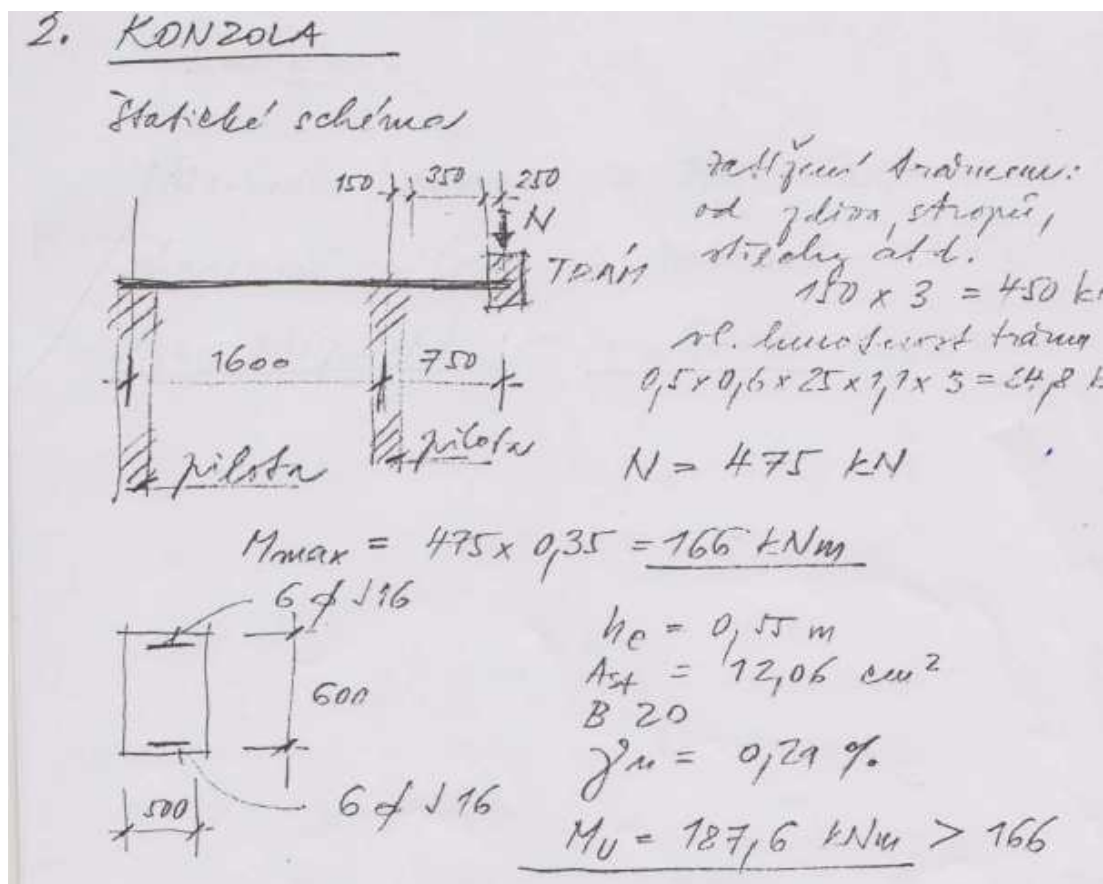 2. KONZOLA
Statické schéma
150 350 250
N
TRÁM
1600 750
pilota pilota
zatížení trámem:
od zdiva, stropů,
střechy atd.
150 x 3 = 450 k
vl. trámu
0,5 x 0,6 x 25 x 1,1 x 3 = 24,8 k
N = 475 kN
Mmax = 475 x 0,35 = 166 kNm
6 ϕ J 16
600
500
6 ϕ J 16
he = 0,55 m
Ast = 12,06 cm²
B 20
= 0,21 %.
MU = 187,6 kNm > 166